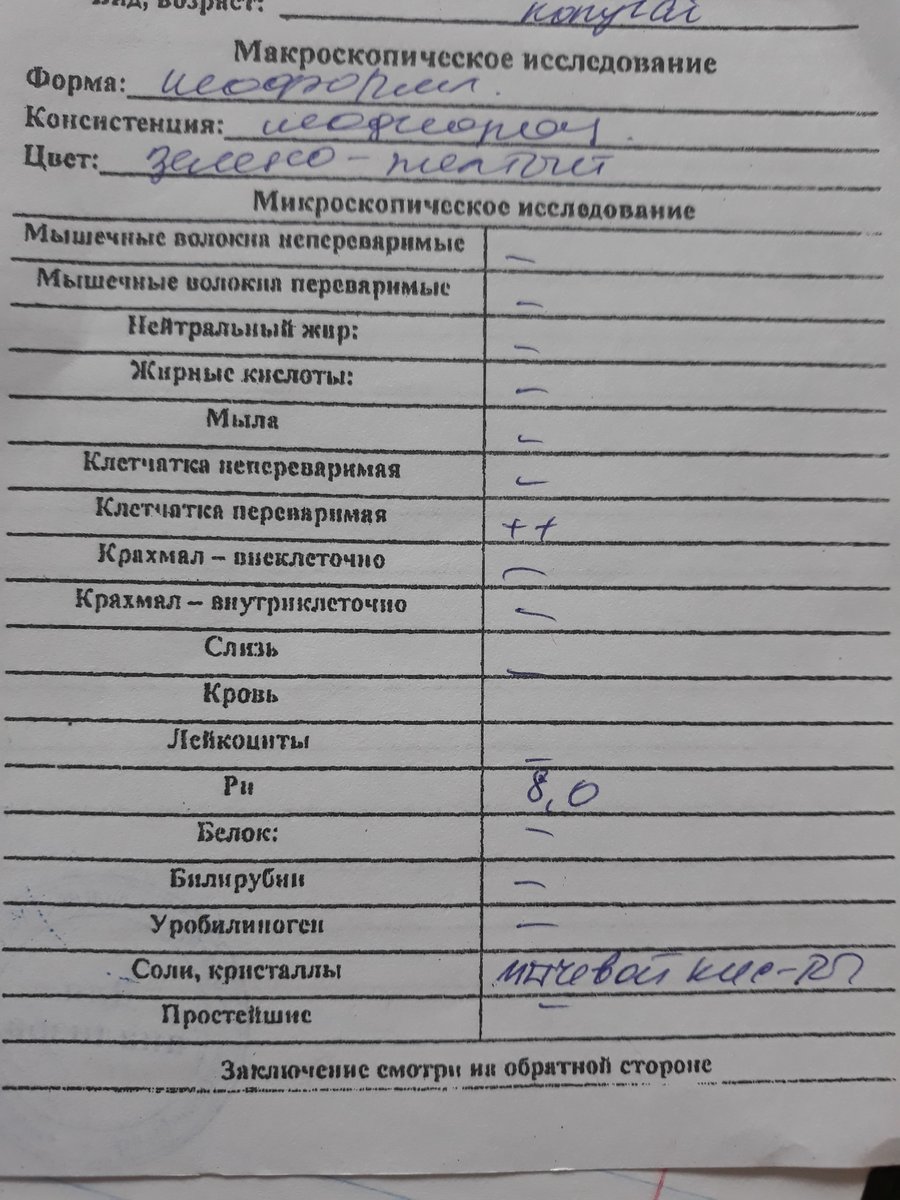 Вид, возраст: попугай
Макроскопическое исследование
Форма: неоформл.
Консистенция: неоднородн.
Цвет: зелено-желтый
Микроскопическое исследование
Мышечные волокна непереваримые –
Мышечные волокна переваримые –
Нейтральный жир: –
Жирные кислоты: –
Мыла –
Клетчатка непереваримая –
Клетчатка переваримая ++
Крахмал – внеклеточно –
Крахмал – внутриклеточно –
Слизь –
Кровь
Лейкоциты –
Рн 8,0
Белок: –
Билирубин –
Уробилиноген –
Соли, кристаллы мочевой кис-ты
Простейшие –
Заключение смотри на обратной стороне